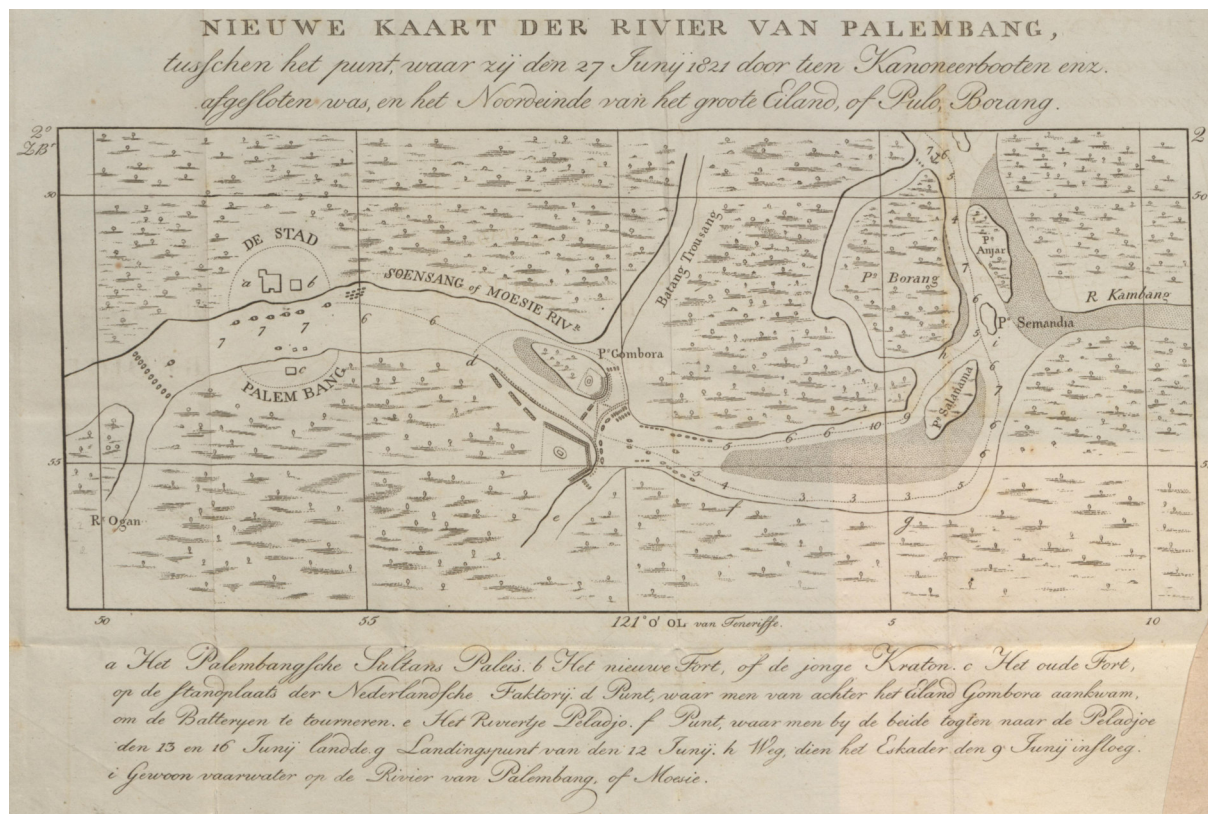 NIEUWE KAART DER RIVIER VAN PALEMBANG,
tusschen het punt, waar zij den 27 Junij 1821 door tien Kanoneerbooten enz.
afgesloten was, en het Noordeinde van het groote Eiland, of Pulo, Borang.
2° 2
ZBr
7 26
5
50 50
4
DE STAD
Batang Trousang
Ps Anjar
a b
SOENSANG of MOESIE RIVR
Ps Borang
7
R Kambang
6
7 7 7 6 6
Ps Semandia
5
7
d
Ps Gombora
h i
c
6
PALEM BANG
Ps Salanama
7
9
10
6 6
5
6
6
55
5
4
3 3 3
5
f
g
e
Rr Ogan
50 55 121° 0' OL van Teneriffe. 5 10
a Het Palembangsche Sultans Paleis. b Het nieuwe Fort, of de jonge Kraton. c Het oude Fort,
op de standplaats der Nederlandsche Faktorij. d Punt, waar men van achter het Eiland Gombora aankwam,
om de Batteryen te tourneren. e Het Riviertje Peladjo. f Punt, waar men by de beide togten naar de Peladjoe
den 13 en 16 Junij landde. g Landingspunt van den 12 Junij. h Weg, dien het Eskader den 9 Junij insloeg.
i Gewoon vaarwater op de Rivier van Palembang, of Moesie.